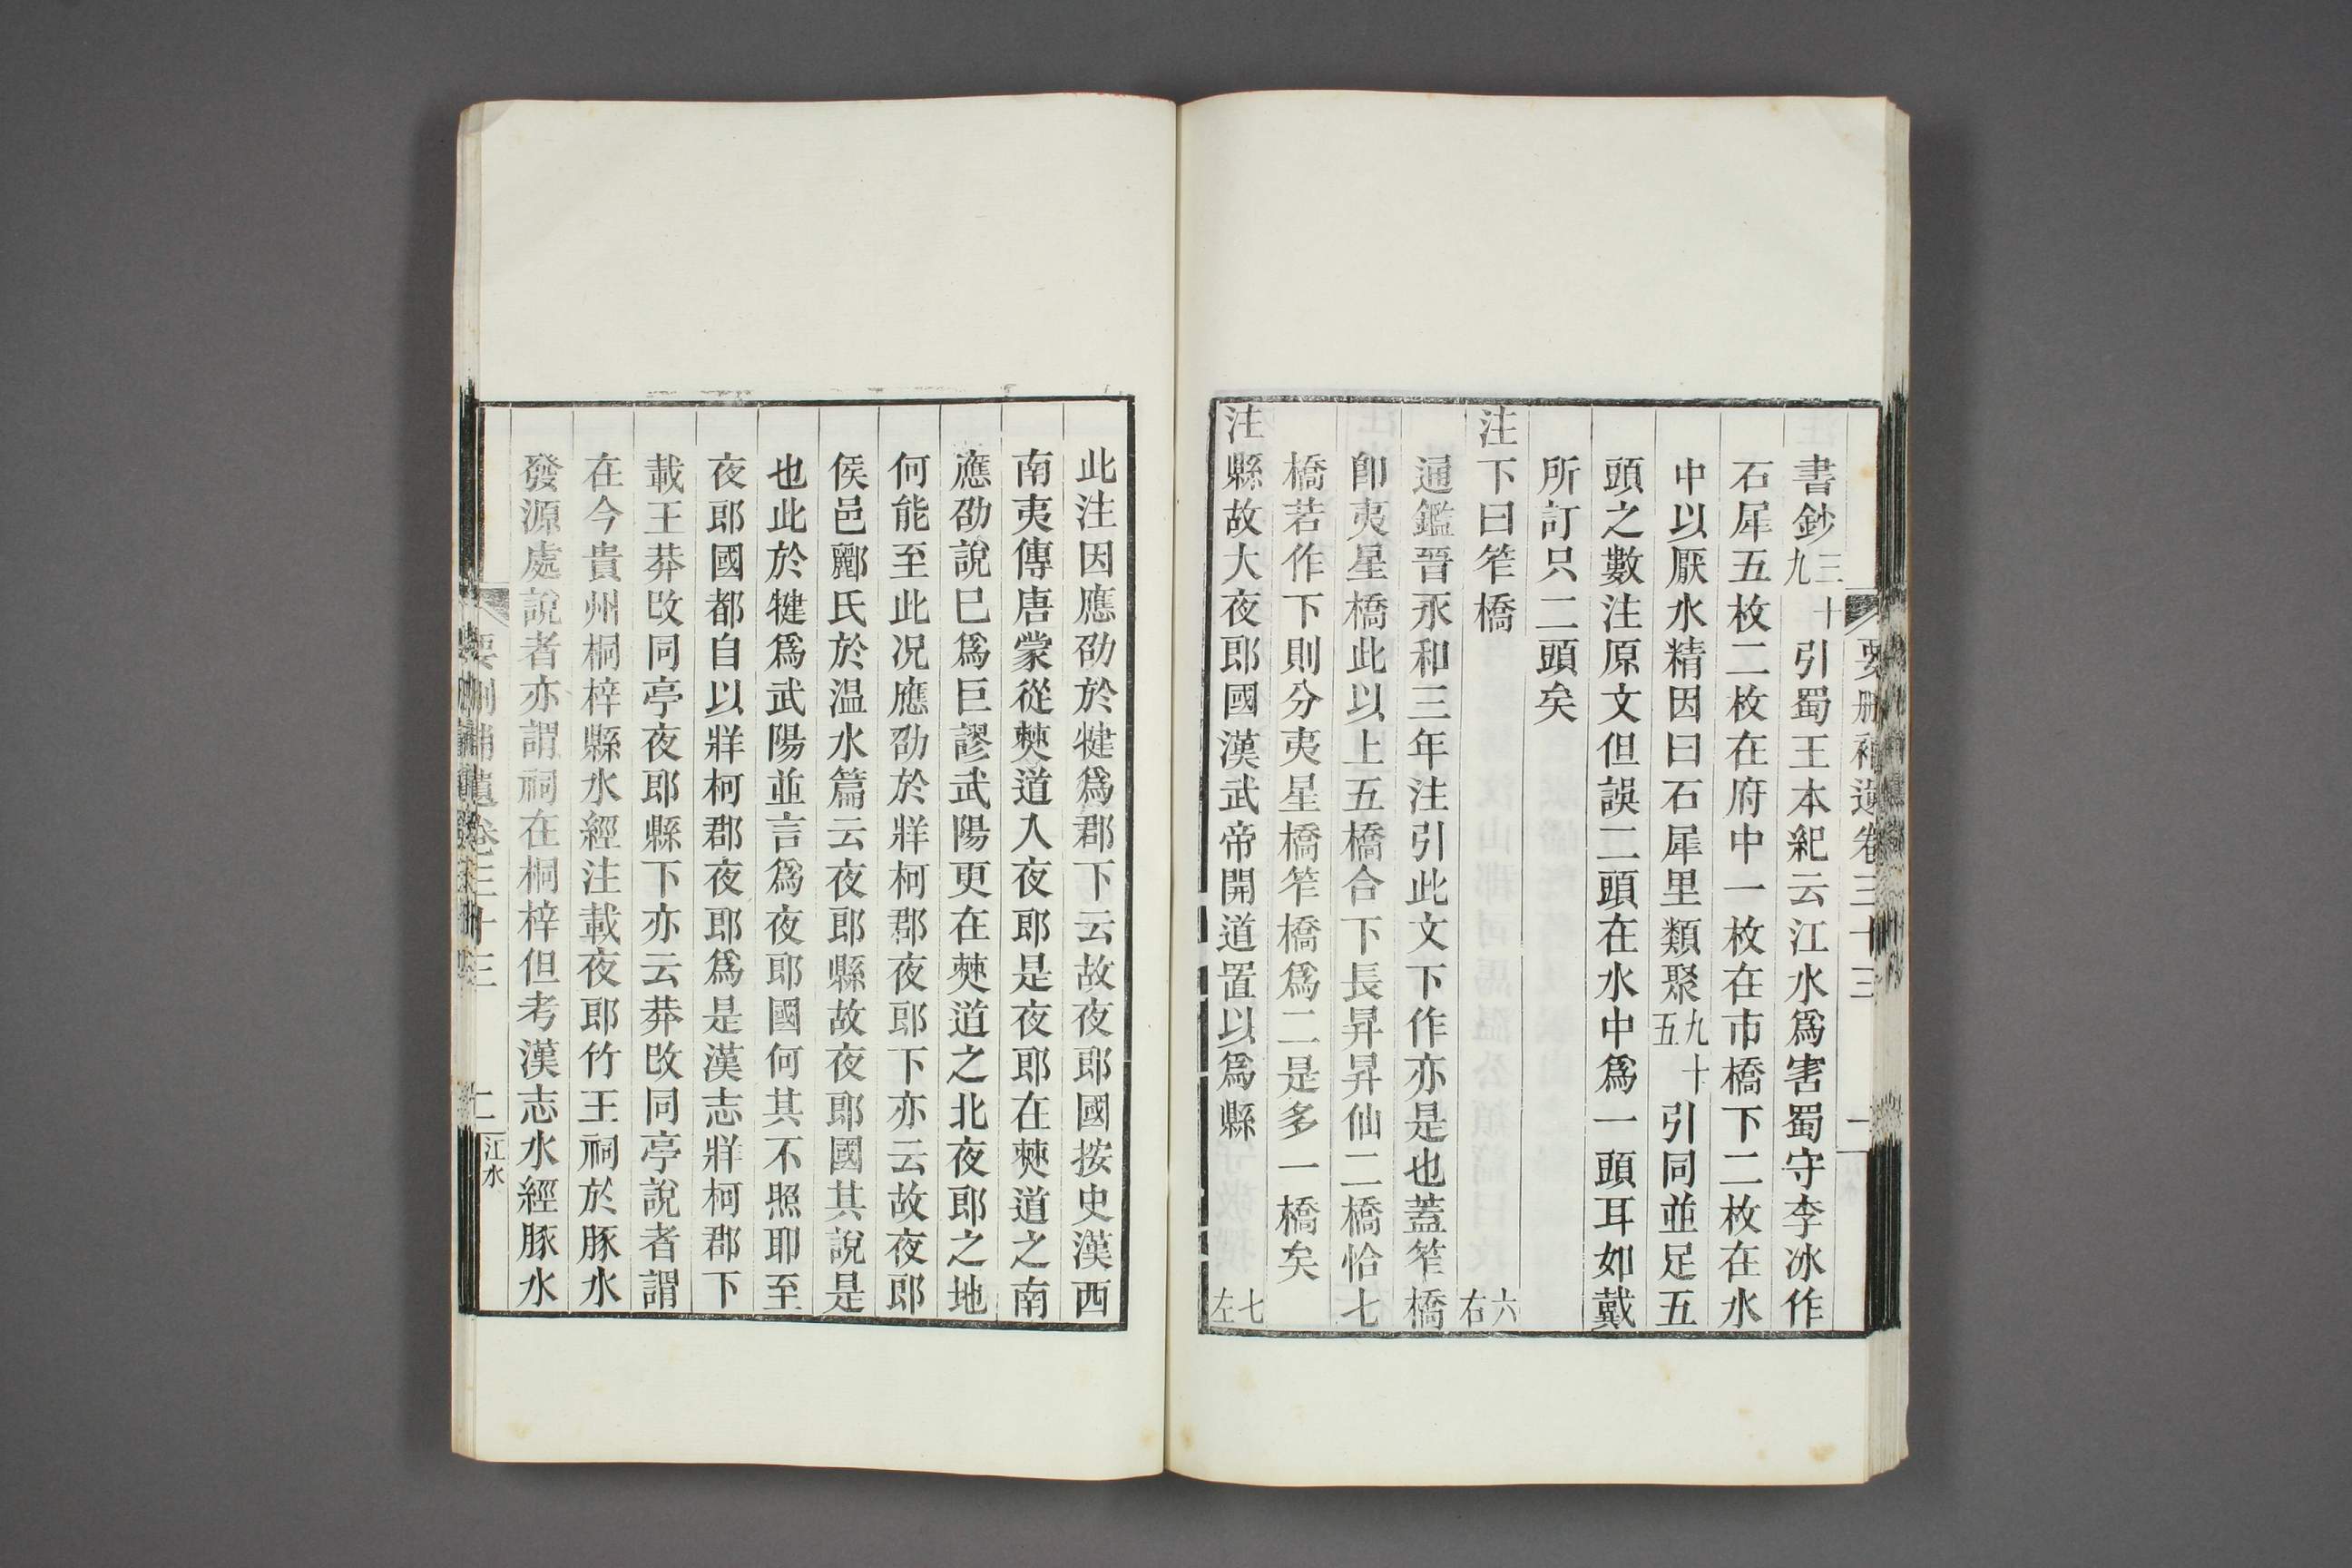 要刪補遺卷三十三
一
書鈔三十九引蜀王本紀云江水爲害蜀守李冰作
石犀五枚二枚在府中一枚在市橋下二枚在水
中以厭水精因曰石犀里類聚九十五引同並足五
頭之數注原文但誤二頭在水中爲一頭耳如戴
所訂只二頭矣
注下曰笮橋 六右
通鑑晉永和三年注引此文下作亦是也蓋笮橋
卽夷星橋此以上五橋合下長昇昇仙二橋恰七
橋若作下則分夷星橋笮橋爲二是多一橋矣
注縣故大夜郎國漢武帝開道置以爲縣 七左
此注因應劭於犍爲郡下云故夜郎國按史漢西
南夷傳唐蒙從僰道入夜郎是夜郎在僰道之南
應劭說已爲巨謬武陽更在僰道之北夜郎之地
何能至此况應劭於牂柯郡夜郎下亦云故夜郎
侯邑酈氏於温水篇云夜郎縣故夜郎國其說是
也此於犍爲武陽並言爲夜郎國何其不照耶至
夜郎國都自以牂柯郡夜郎爲是漢志牂柯郡下
載王莽改同亭夜郎縣下亦云莽改同亭說者謂
在今貴州桐梓縣水經注載夜郎竹王祠於豚水
發源處說者亦謂祠在桐梓但考漢志水經豚水
要刪補遺卷三十三
二
江水